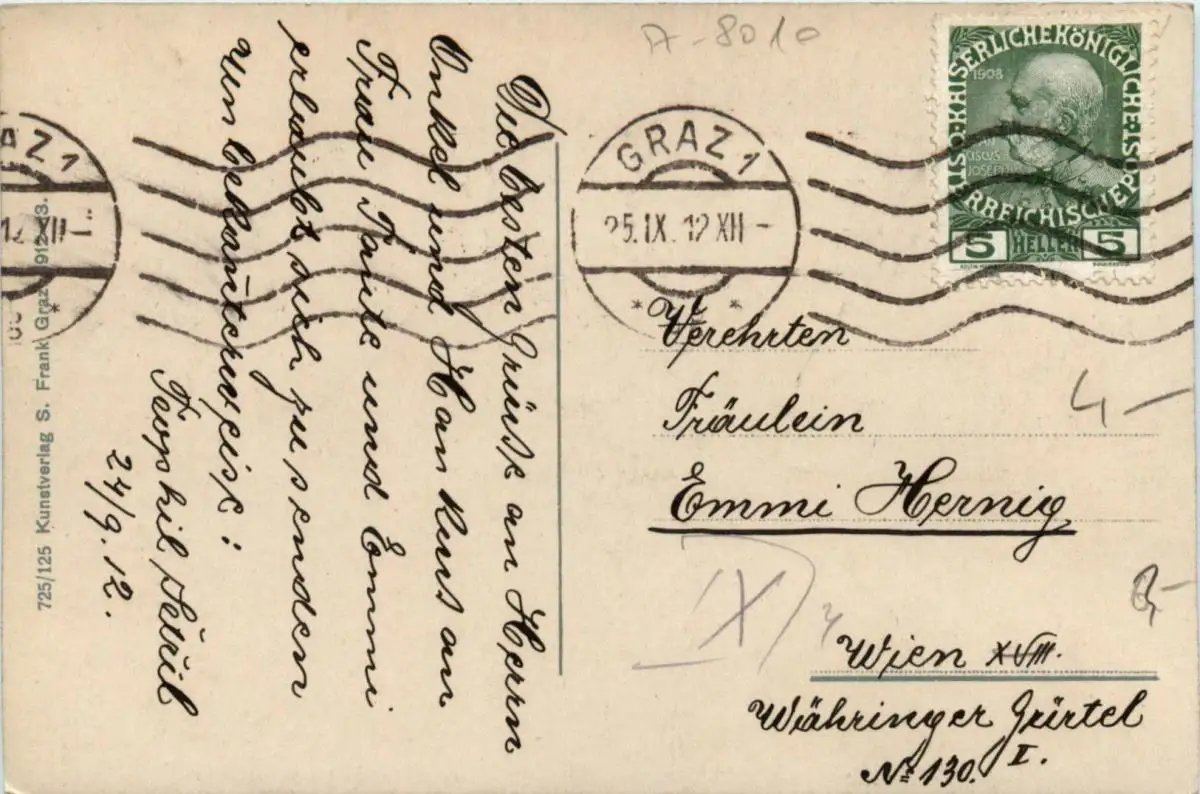 A-8010
Die besten Grüße an Herrn
Onkel und Han Kuss an
Frau Tante und Emmi
erlaubt sich zu senden
Un bekan̄terweise:
24/9. 12.
725/125 Kunstverlag S. Frank Graz 1912/13.
AZ 1
12 XII -
GRAZ 1
25. IX. 12 XII -
* *
KAISERLICHE KÖNIGLICHE ÖSTERREICHISCHE POST
1908
FRAN
CISCVS
JOSEPH I
5 HELLER 5
Verehrten
Fräulein
Emmi Hernig
4,-
IX
Wien XVIII.
Währinger Gürtel
No 130. I.